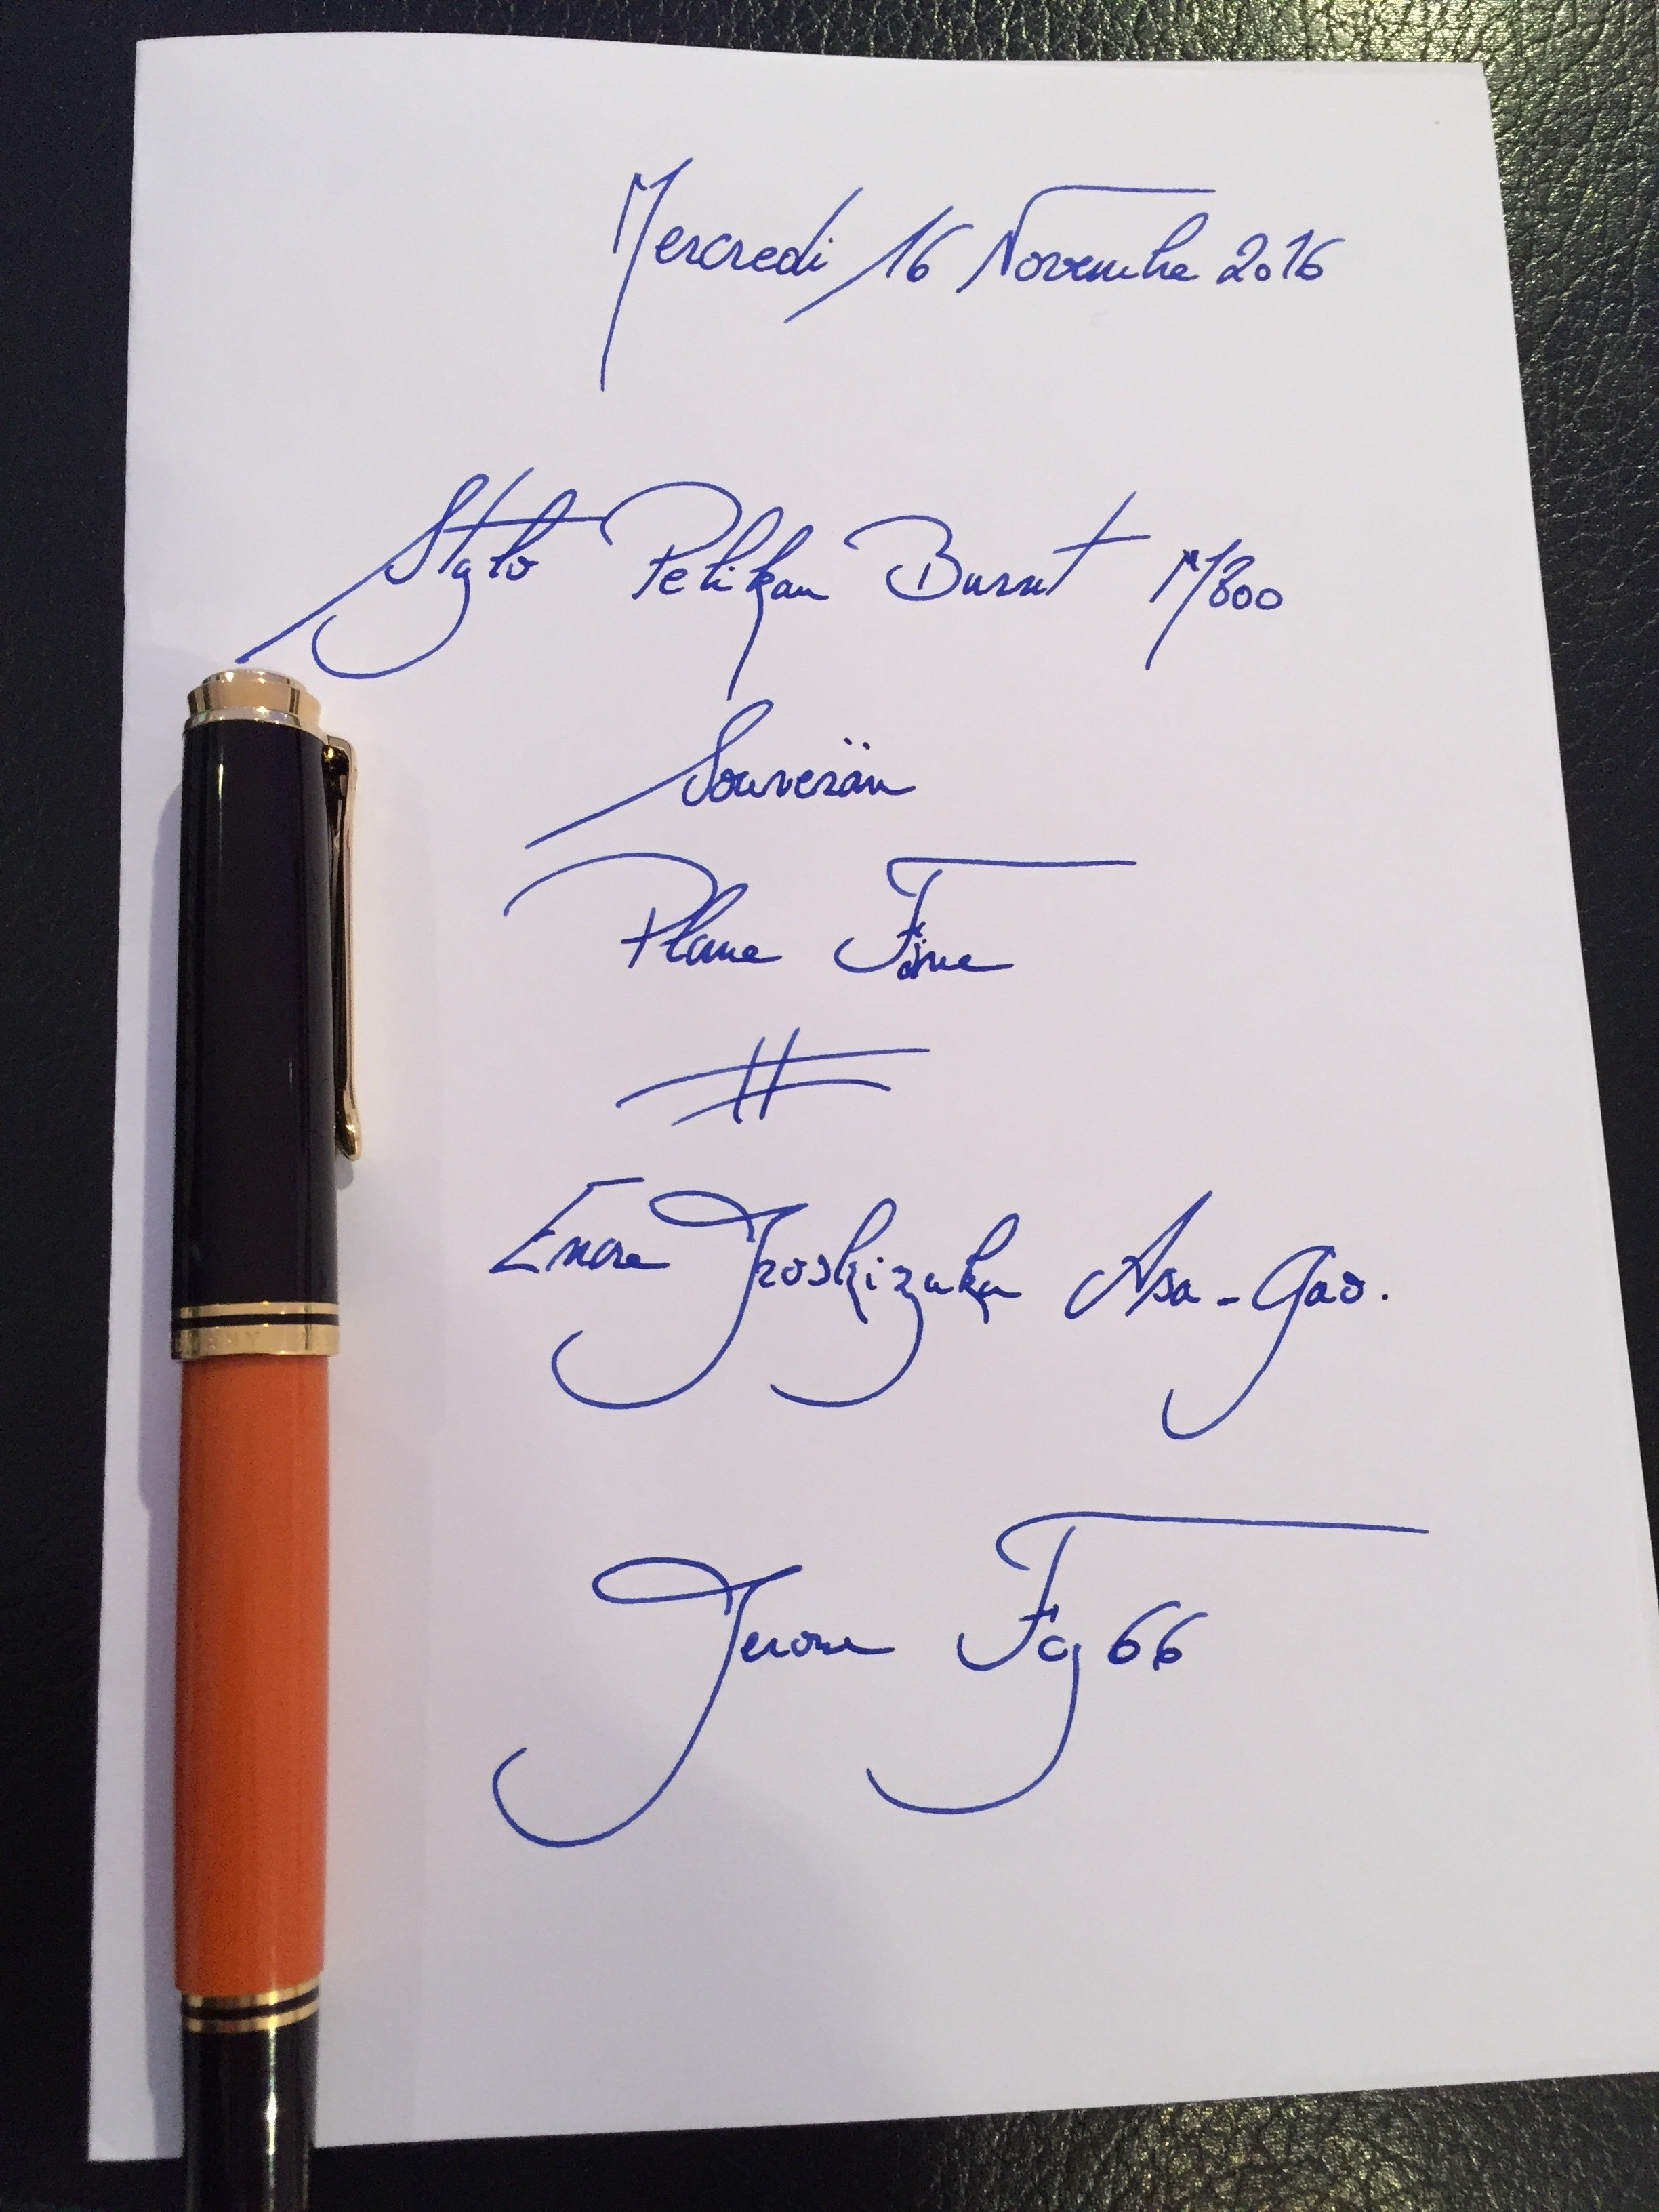 Mercredi 16 Novembre 2016
Stylo Pelikan Burnt M800
Souverän
Plume Fine
Encre Iroshizuku Asa-Gao.
Jerome Fg 66